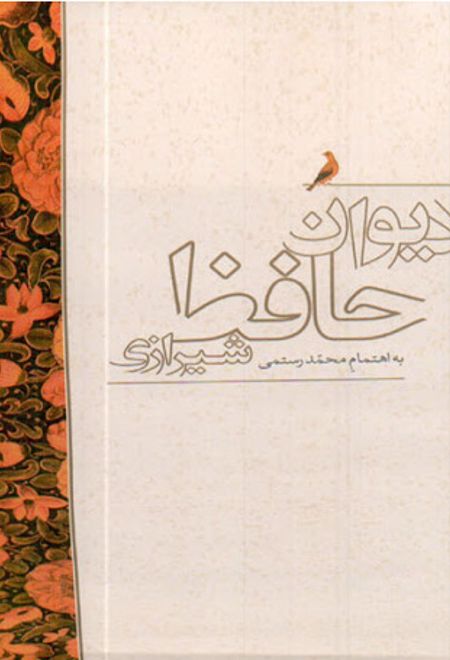 دیوان
حافظ
شیرازی
به اهتمام محمّد رستمی